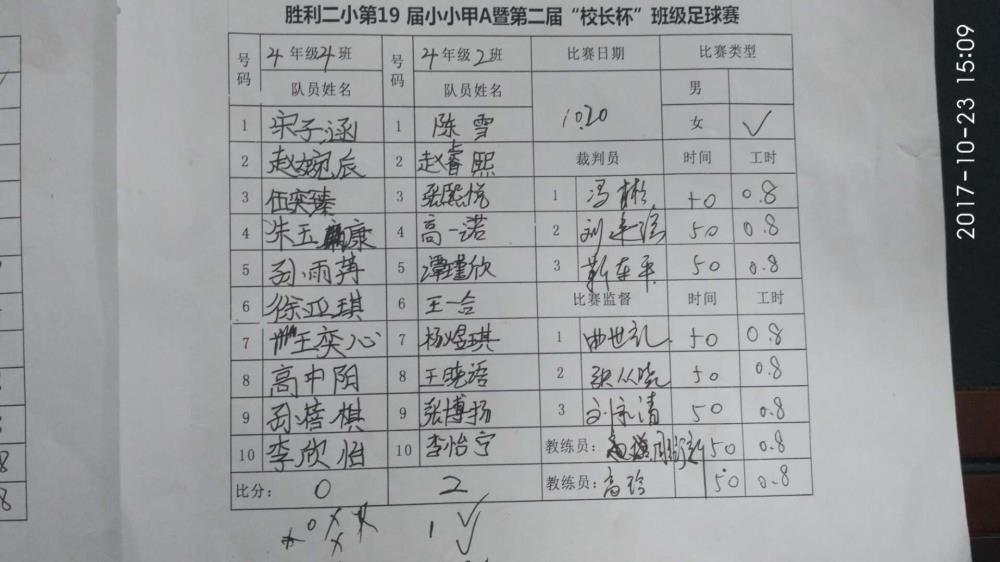 胜利二小第19 届小小甲A暨第二届“校长杯”班级足球赛
号码 4年级4班 号码 4年级2班 比赛日期 比赛类型
队员姓名 队员姓名 10.20 男
1 宋子涵 1 陈雪 女 ✓
2 赵婉辰 2 赵睿熙 裁判员 时间 工时
3 伍奕臻 3 张熙悦 1 冯彬 50 0.8
4 朱玉康 4 高一诺 2 50 0.8
5 孙雨苒 5 谭瑾欣 3 靳东平 50 0.8
6 徐亚琪 6 王一合 比赛监督 时间 工时
7 王奕心 7 杨煜琪 1 曲世礼 50 0.8
8 高中阳 8 王晓语 2 张从晓 50 0.8
9 孙蓓棋 9 张博扬 3 刘永清 50 0.8
10 李欣怡 10 李怡宁 教练员： 50 0.8
比分： 0 2 教练员：高玲 50 0.8
2017-10-23 15:09